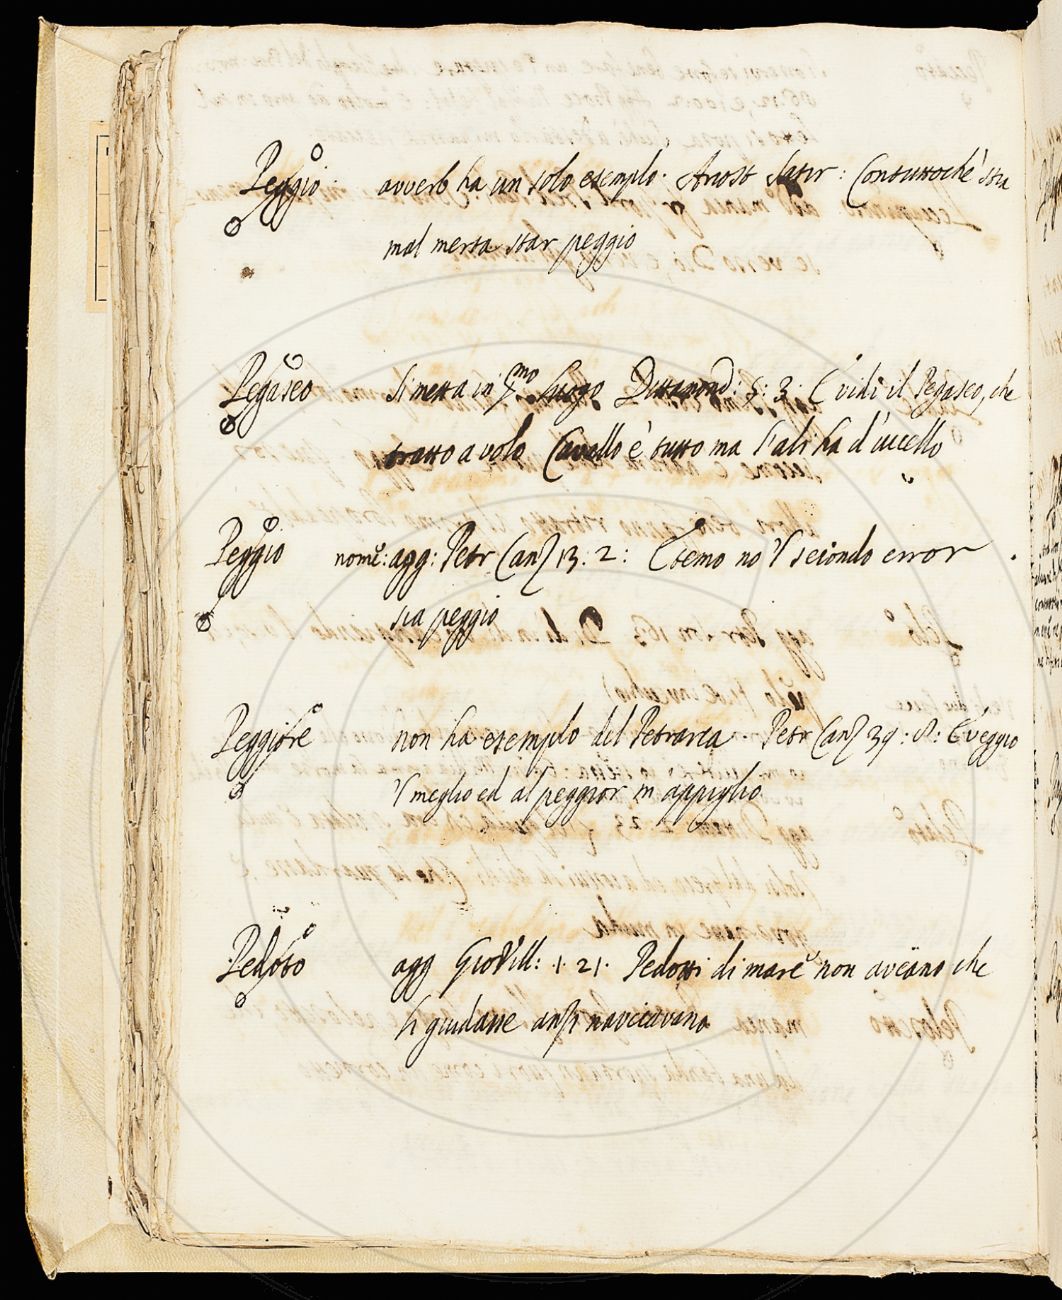 Peggio avverb ha un solo esempio. Ariost Satir: Contuttochè stia
mal merta star peggio
Pegaseo si metta in p.mo luogo Dittamond: 5: 3. E vidi il Pegaseo, che
tratto a volo Cavallo è tutto ma l'ali ha d'uccello
Peggio nome: agg: Petr Canz 13: 2: E temo no 'l secondo error
sia peggio
Peggiore non ha esempio del Petrarca Petr Canz 39: 8: E veggio
'l meglio ed al peggior m appiglio
Pedoto agg Gio Vill: 1. 21. Pedotti di mare non aveano che
li guidasse anzi navicavano